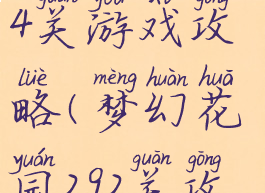 4关游戏攻
lüè mèng huàn huā
略(梦幻花
yuán guān gōng
园292关攻